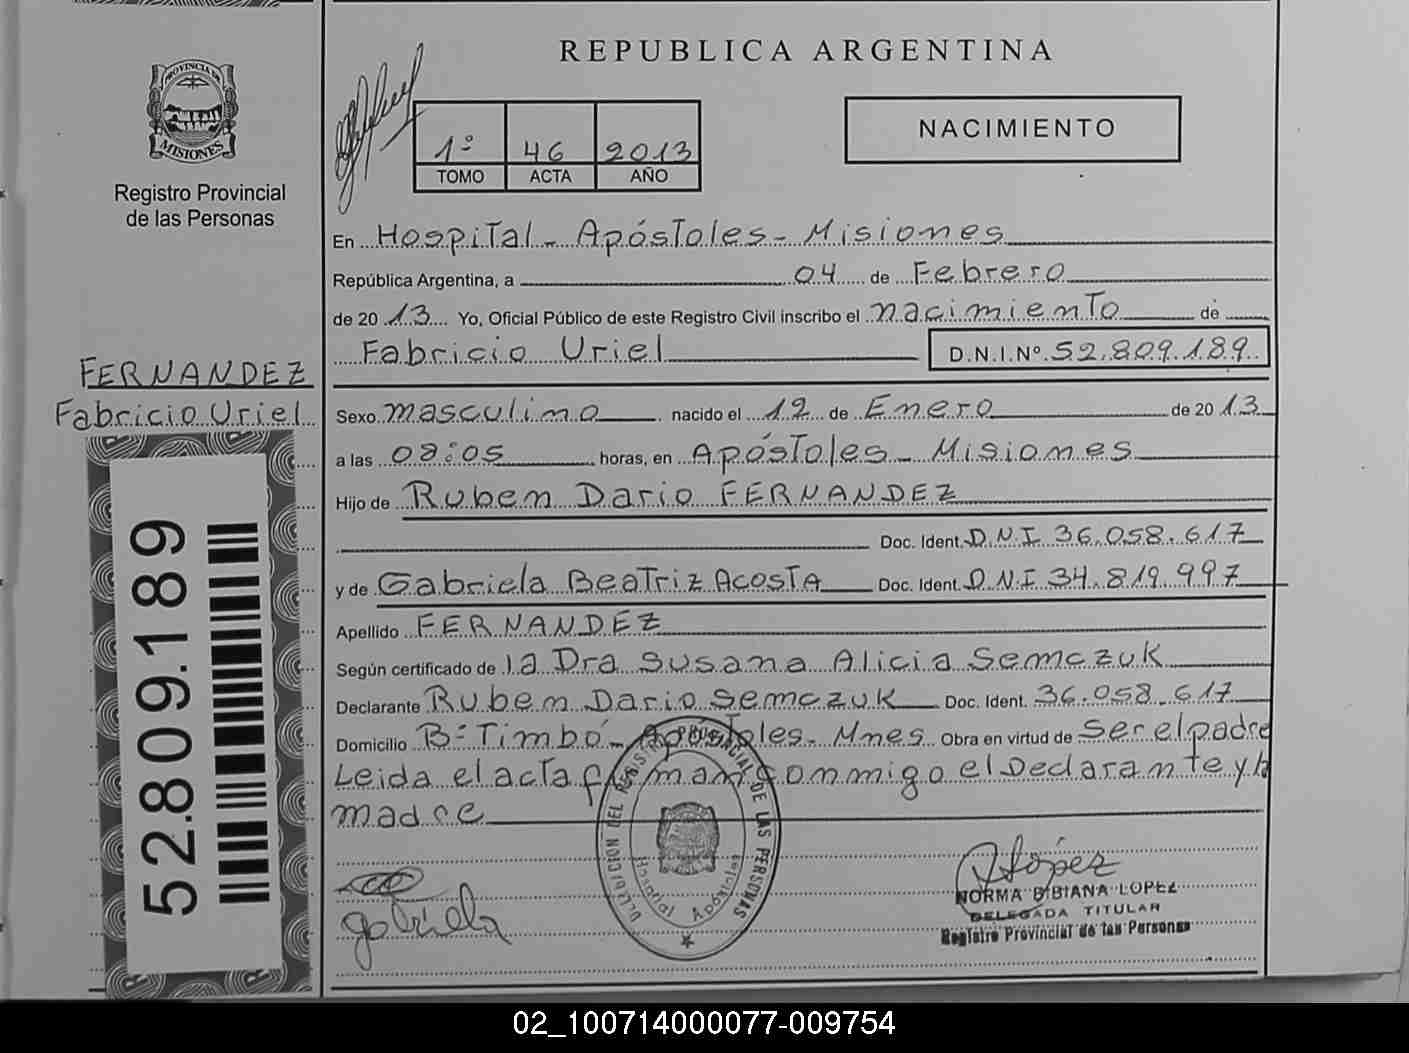 REPUBLICA ARGENTINA
PROVINCIA DE
MISIONES
Registro Provincial
de las Personas
1º 46 2013
TOMO ACTA AÑO
NACIMIENTO
En Hospital - Apóstoles - Misiones
República Argentina, a 04 de Febrero
de 2013 Yo, Oficial Público de este Registro Civil inscribo el nacimiento de
Fabricio Uriel D.N.I.Nº 52.809.189
FERNANDEZ
Fabricio Uriel
Sexo masculino nacido el 12 de Enero de 2013
a las 08:05 horas, en Apóstoles - Misiones
Hijo de Ruben Dario FERNANDEZ
Doc. Ident. D.N.I 36.058.617
y de Gabriela Beatriz Acosta Doc. Ident. D.N.I 34.819.997
Apellido FERNANDEZ
Según certificado de la Dra Susana Alicia Semczuk
Declarante Ruben Dario Semczuk Doc. Ident. 36.058.617
Domicilio Bº Timbó - Apóstoles - Mnes Obra en virtud de Ser el padre
Leida el acta firman conmigo el Declarante y la
madre
52.809.189
DELEGACION DEL REGISTRO PROVINCIAL DE LAS PERSONAS
Hospital Apóstoles
gabriela
NLopez
NORMA BIBIANA LOPEZ
DELEGADA TITULAR
Registro Provincial de las Personas
02_100714000077-009754